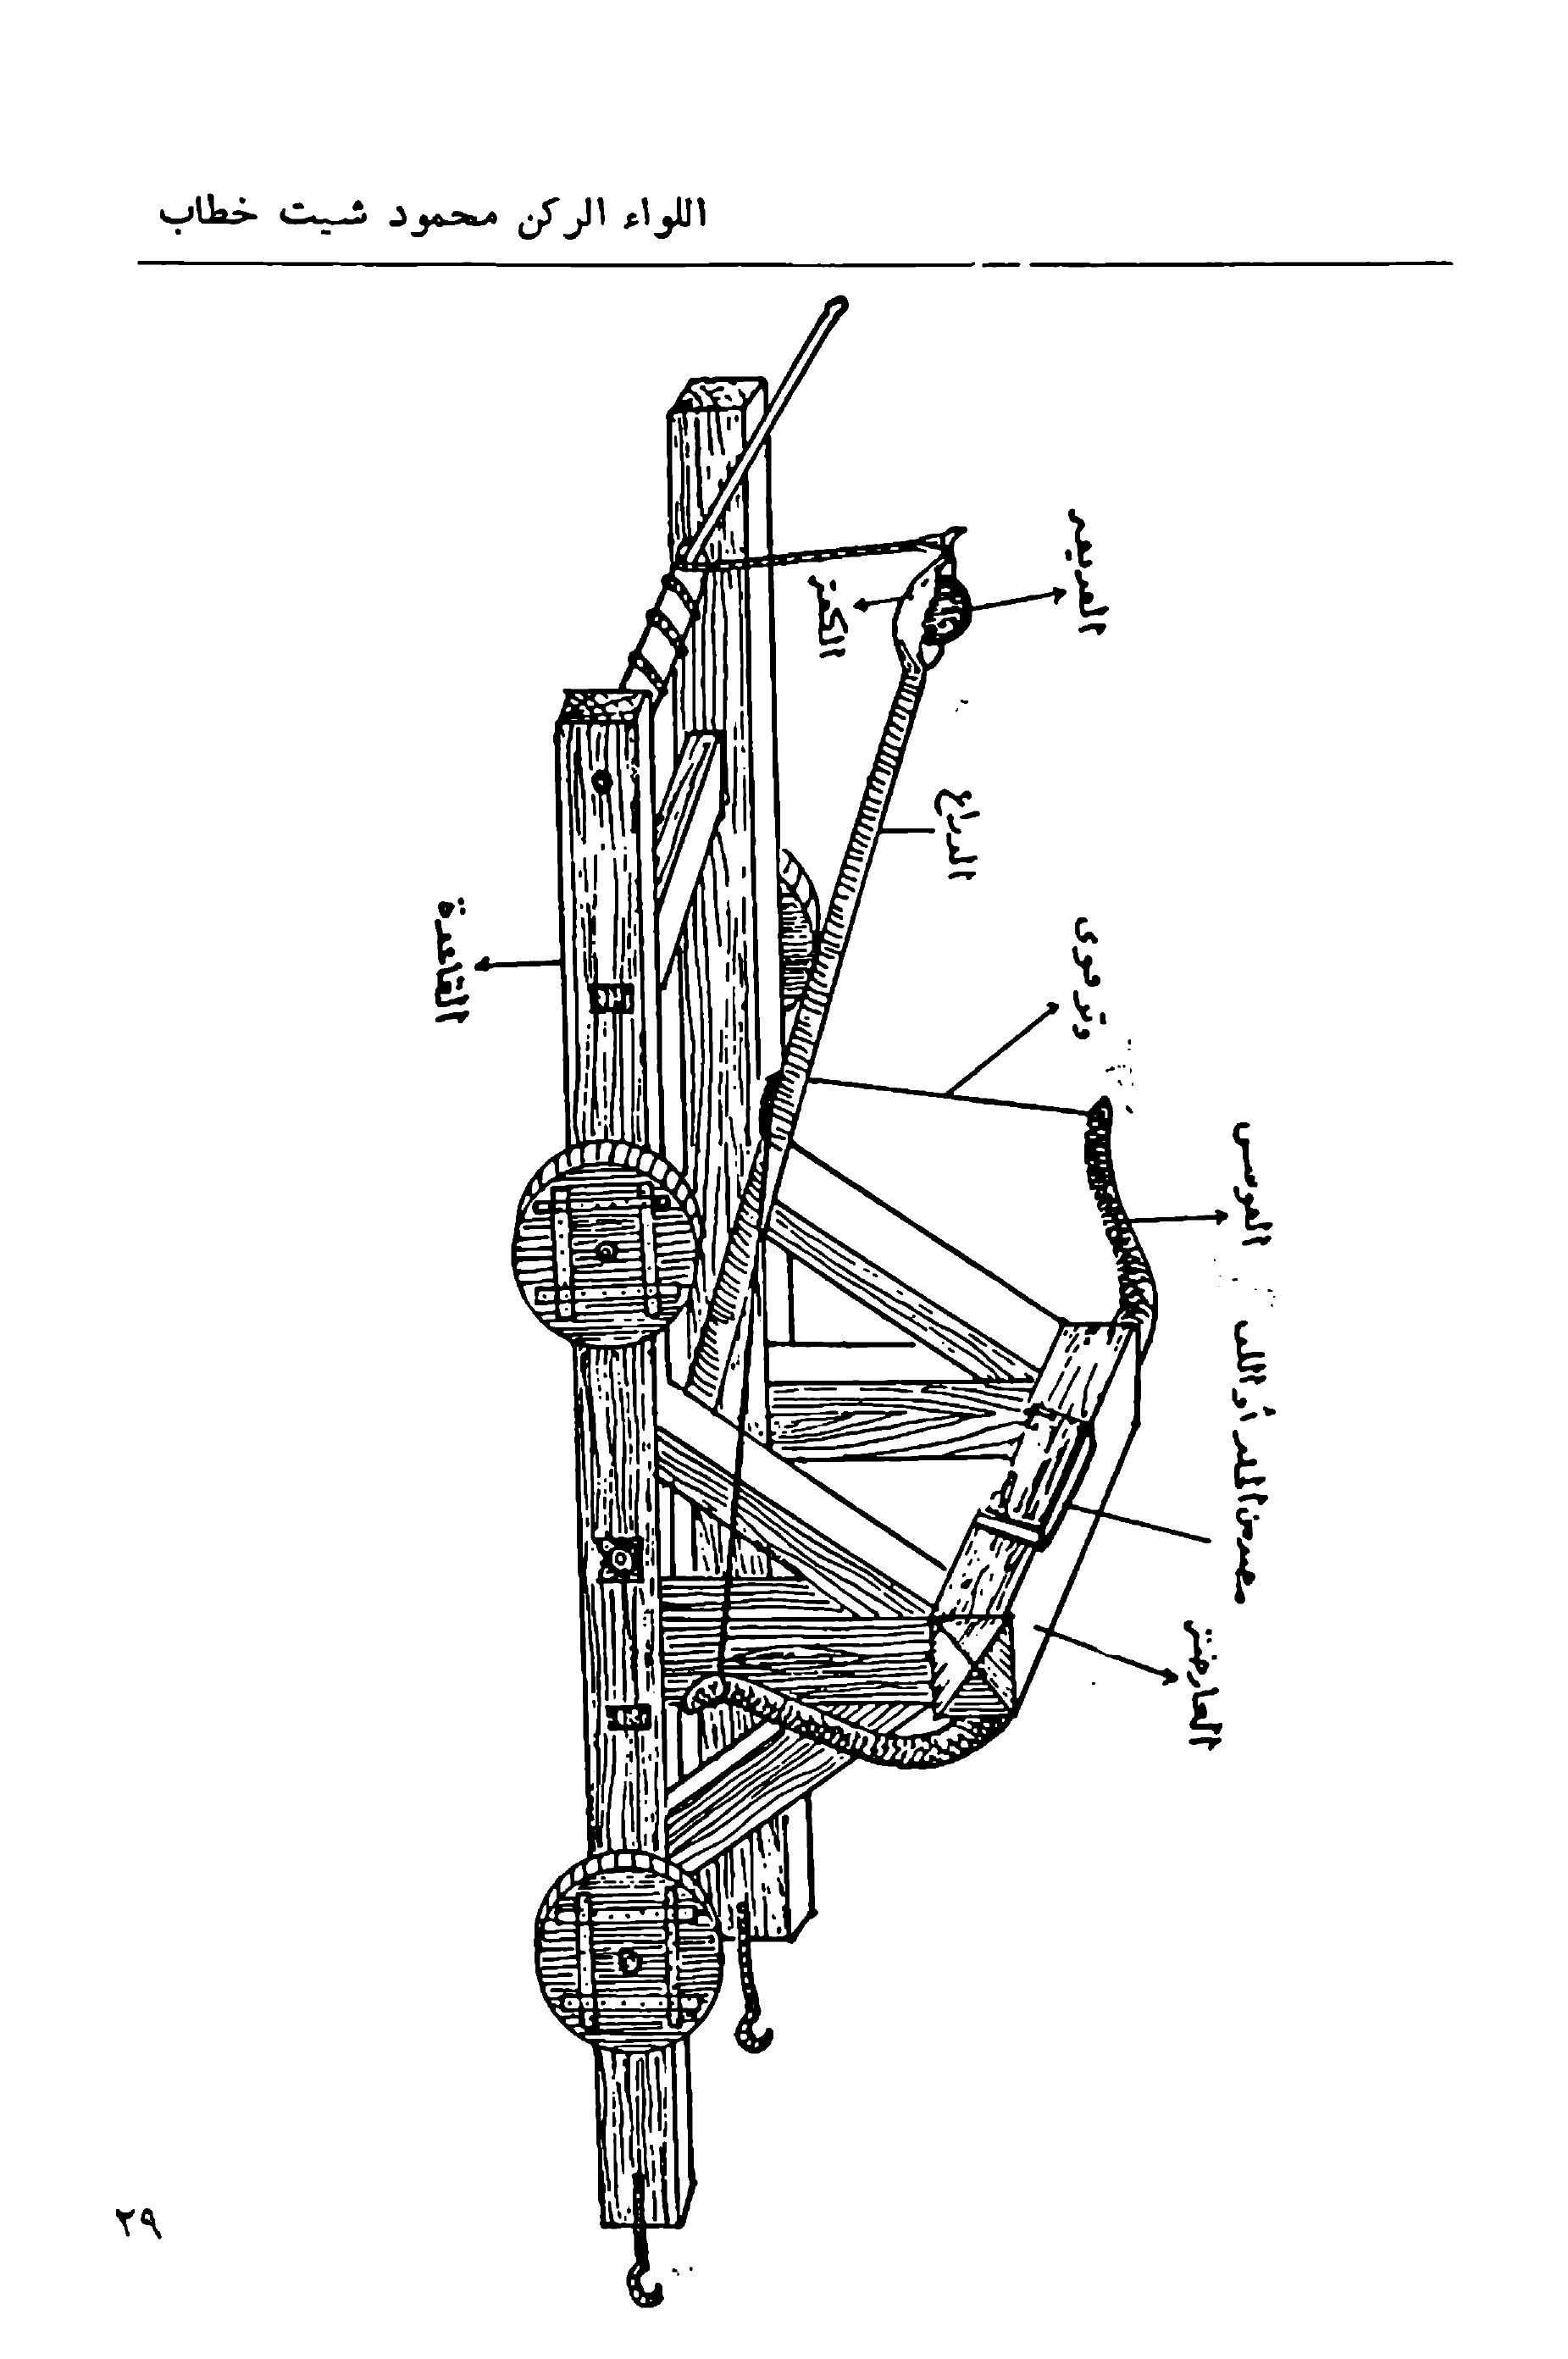 اللواء الركن محمود شيت خطاب
الكفة
الذراع
وتر قوى
القاعدة
القوس
العارضة
٢٩